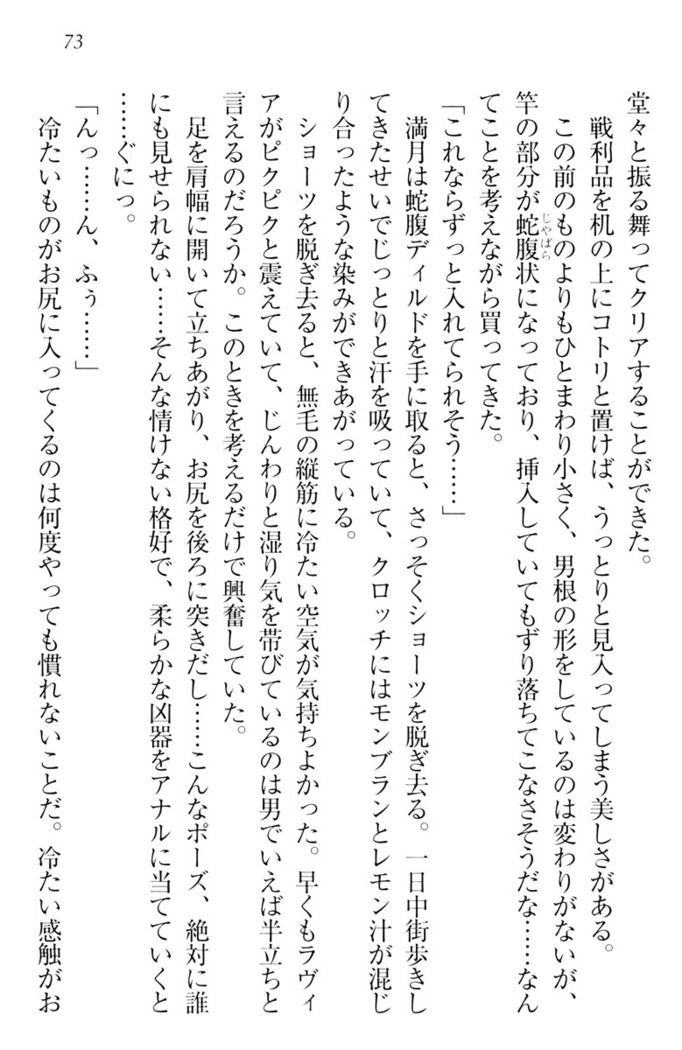 73
堂々と振る舞ってクリアすることができた。
戦利品を机の上にコトリと置けば、うっとりと見入ってしまう美しさがある。
この前のものよりもひとまわり小さく、男根の形をしているのは変わりがないが、
竿の部分が蛇腹状になっており、挿入していてもずり落ちてこなさそうだな……なん
じゃばら
てことを考えながら買ってきた。
「これならずっと入れてられそう……」
満月は蛇腹ディルドを手に取ると、さっそくショーツを脱ぎ去る。一日中街歩きし
てきたせいでじっとりと汗を吸っていて、クロッチにはモンブランとレモン汁が混じ
り合ったような染みができあがっている。
ショーツを脱ぎ去ると、無毛の縦筋に冷たい空気が気持ちよかった。早くもラヴィ
アがピクピクと震えていて、じんわりと湿り気を帯びているのは男でいえば半立ちと
言えるのだろうか。このときを考えるだけで興奮していた。
足を肩幅に開いて立ちあがり、お尻を後ろに突きだし……こんなポーズ、絶対に誰
にも見せられない……そんな情けない格好で、柔らかな凶器をアナルに当てていくと
……ぐにっ。
「んっ……ん、ふぅ……」
冷たいものがお尻に入ってくるのは何度やっても慣れないことだ。冷たい感触がお